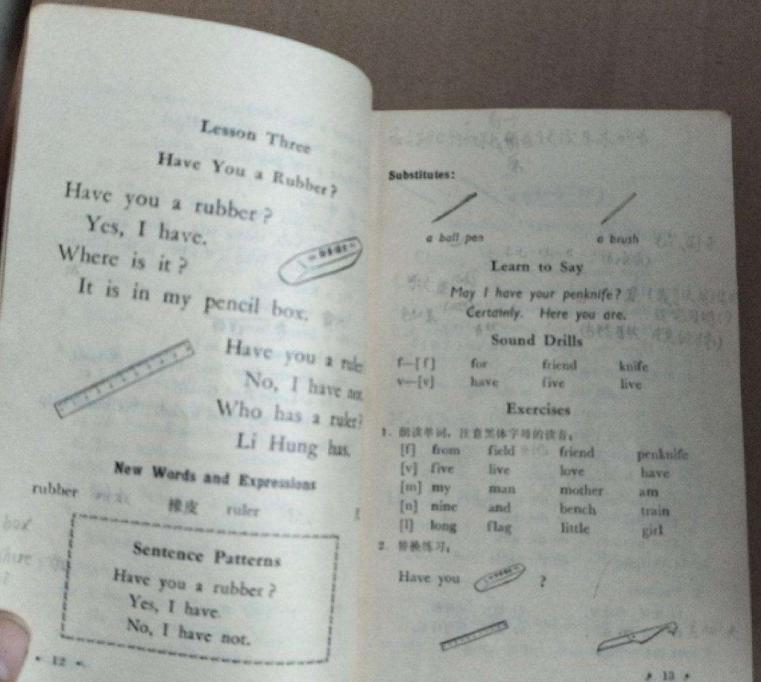 Lesson Three
Have You a Rubber?
Have you a rubber?
Yes, I have.
Where is it?
It is in my pencil box.
Have you a ruler
No, I have not.
Who has a ruler?
Li Hung has.
New Words and Expressions
rubber 橡皮 ruler
Sentence Patterns
Have you a rubber?
Yes, I have.
No, I have not.
12
Substitutes:
a ball pen a brush
Learn to Say
May I have your penknife?
Certainly. Here you are.
Sound Drills
f—[f] for friend knife
v—[v] have five live
Exercises
1. 朗读单词，注意黑体字母的读音：
[f] from field friend penknife
[v] five live love have
[m] my man mother am
[n] nine and bench train
[l] long flag little girl
2. 替换练习：
Have you ?
13